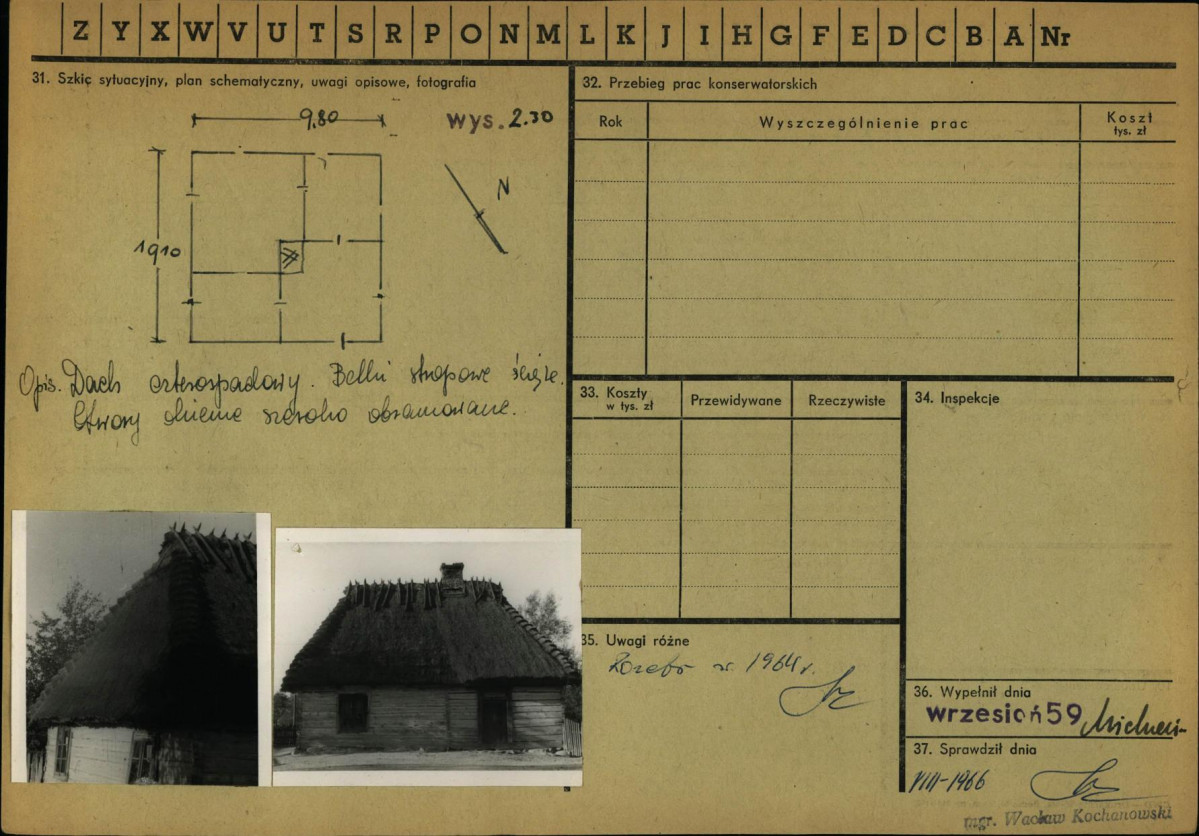 Z Y X W V U T S R P O N M L K J I H G F E D C B A Nr
31. Szkic sytuacyjny, plan schematyczny, uwagi opisowe, fotografia
9.80
wys. 2.30
N
1910
Opis. Dach czterospadowy. Belki stropowe ścięte.
Otwory okienne szeroko obramowane.
32. Przebieg prac konserwatorskich
Rok
Wyszczególnienie prac
Koszt
tys. zł
33. Koszty
w tys. zł
Przewidywane
Rzeczywiste
34. Inspekcje
35. Uwagi różne
1964 r.
36. Wypełnił dnia
wrzesień 59
37. Sprawdził dnia
VIII-1966
mgr. Wacław Kochanowski